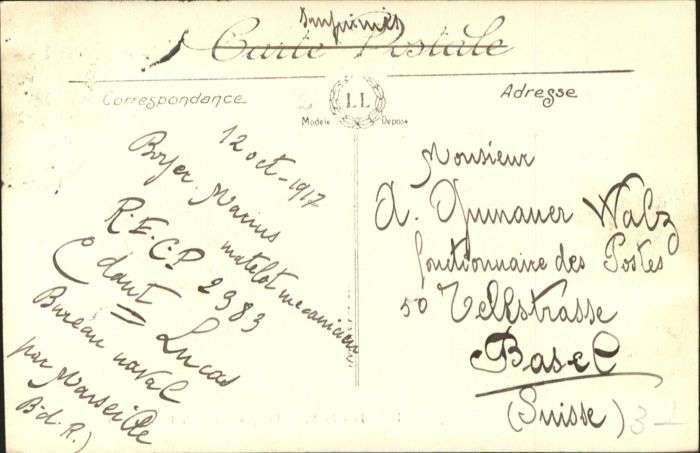 Imprimés
Carte Postale
Correspondance
LL
Modèle Déposé
Adresse
12 oct-1917
Boyer Marius
matelot mécanicien
R.E.C.P 2383
Cdant Lucas
Bureau naval
par Marseille
B-d.R.)
Monsieur
A. Walz
fonctionnaire des Postes
50
Basel
(Suisse)
3-